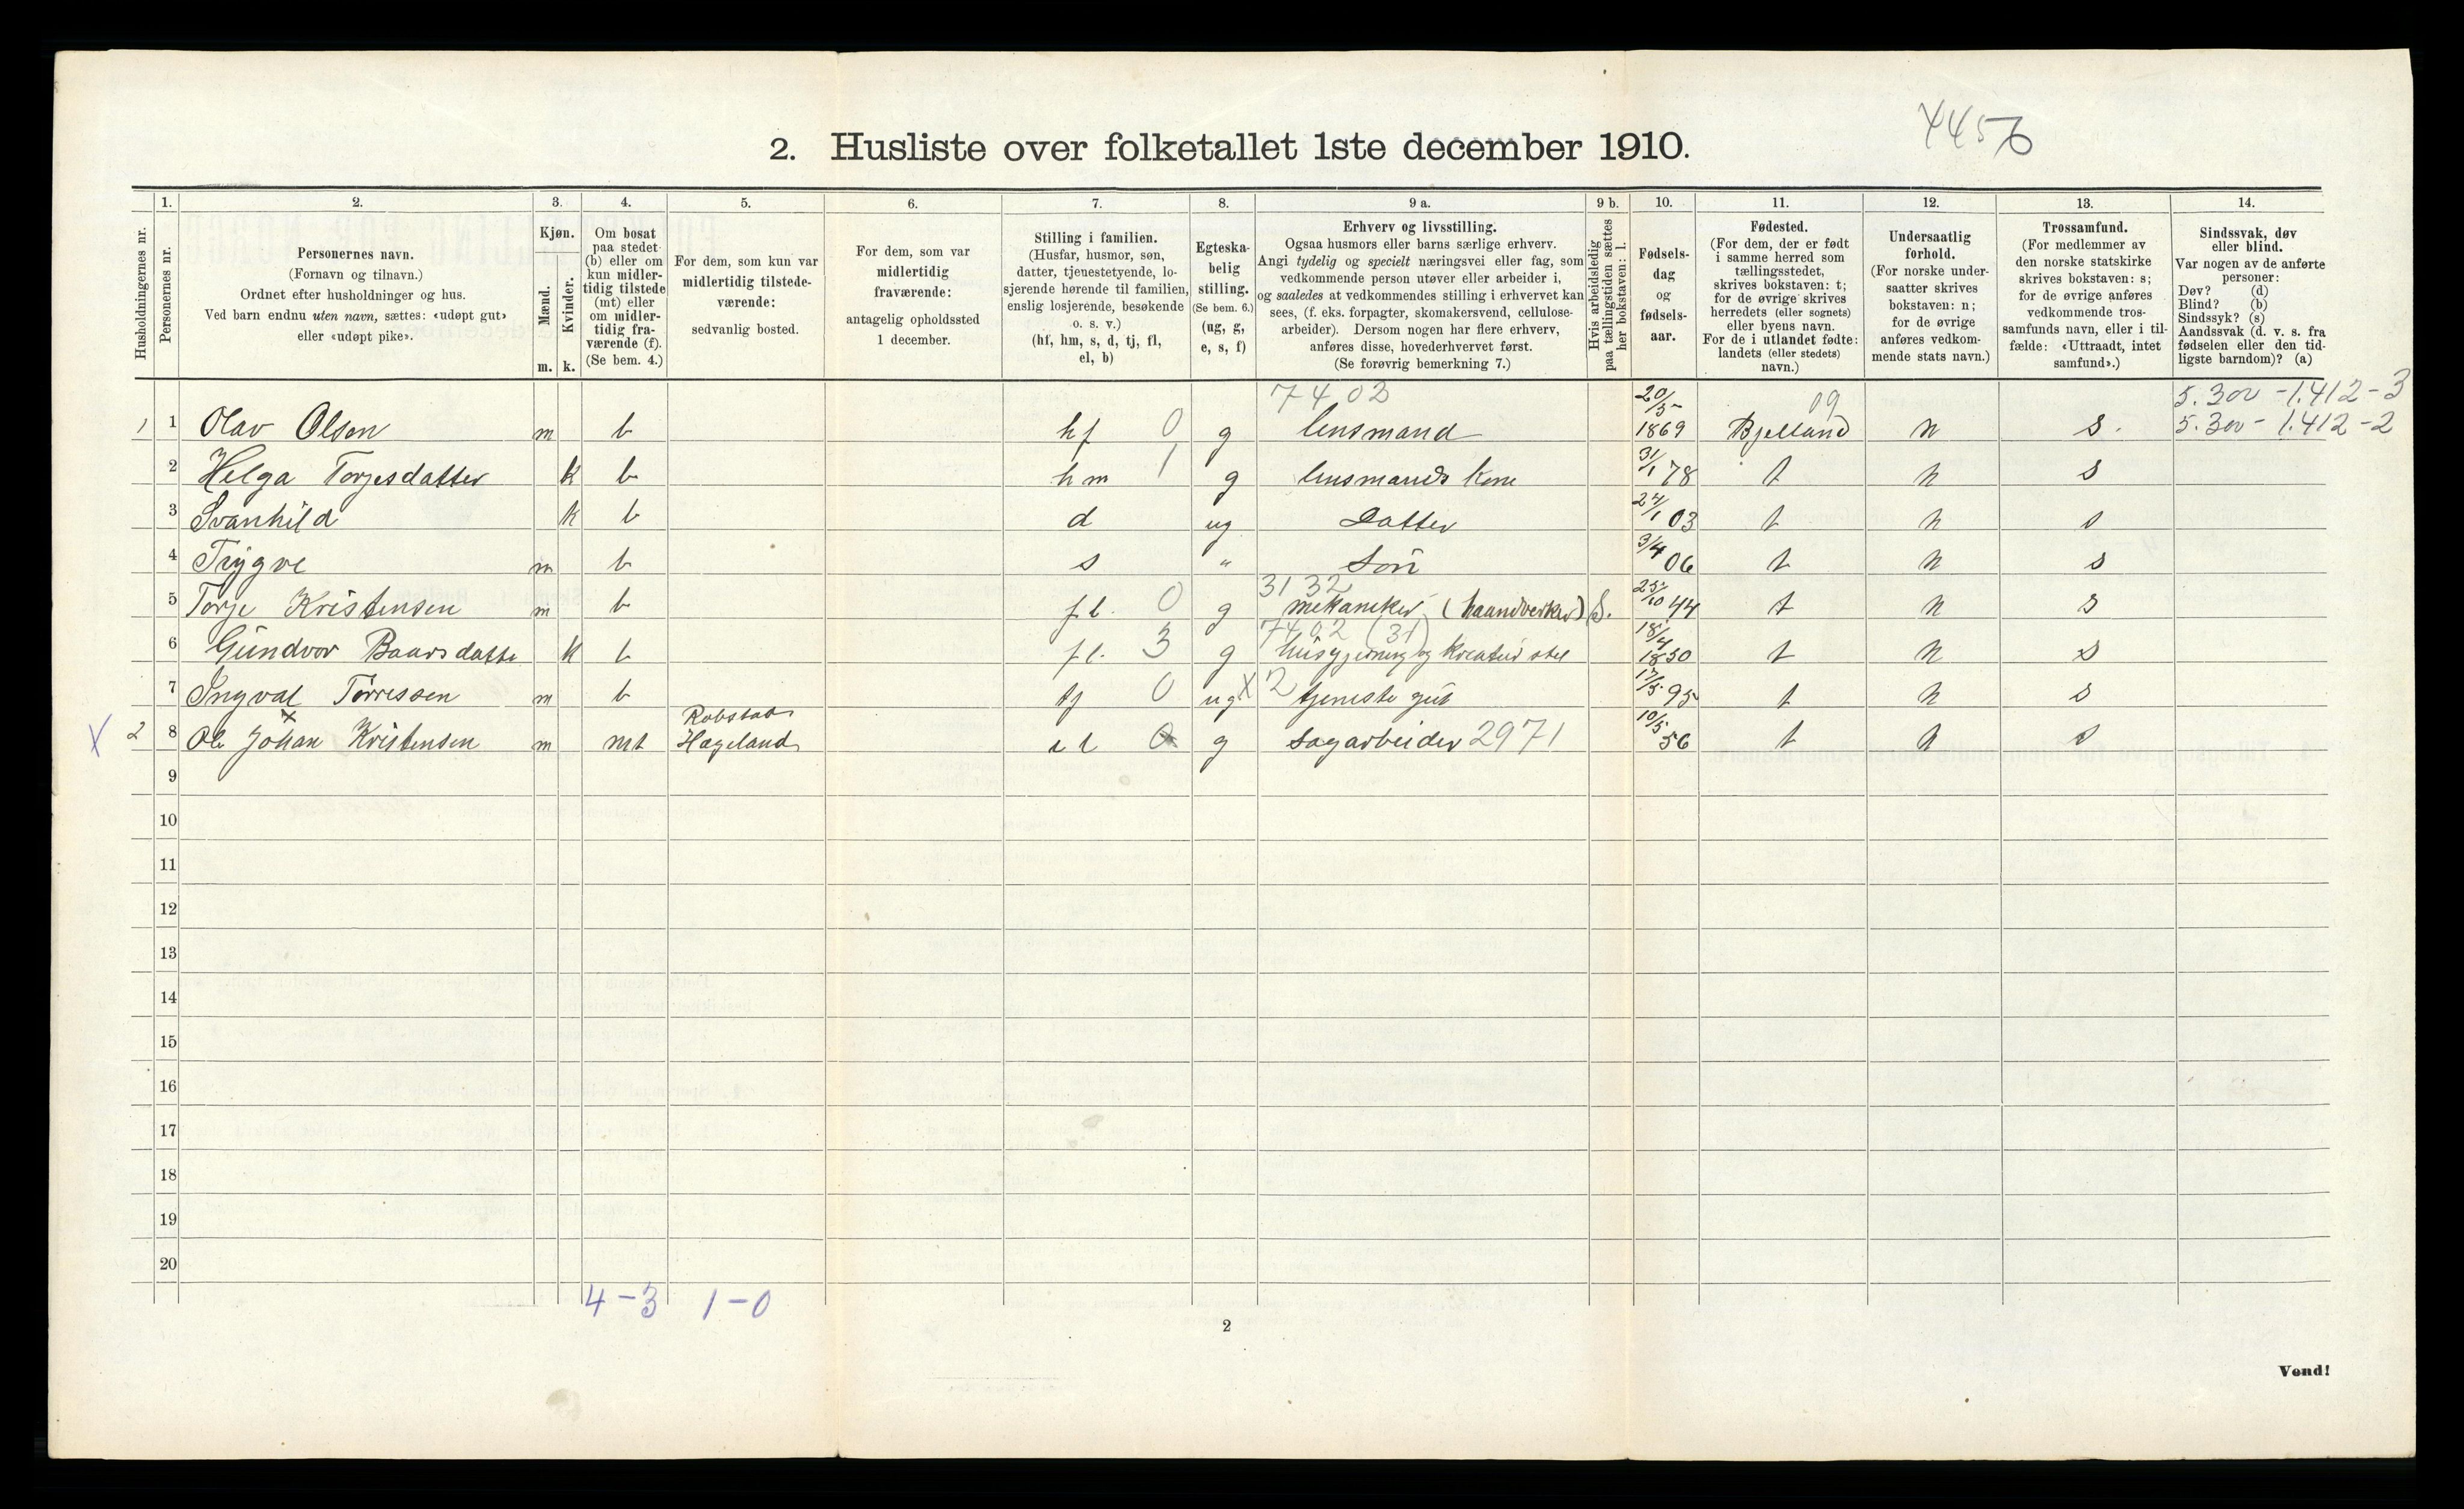 4456
2. Husliste over folketallet 1ste december 1910.
Husholdningernes nr.
1.
Personernes nr.
2.
Personernes navn.
(Fornavn og tilnavn.)
Ordnet efter husholdninger og hus.
Ved barn endnu uten navn, sættes: «udøpt gut»
eller «udøpt pike».
3.
Kjøn.
Mænd.
Kvinder.
m. k.
4.
Om bosat
paa stedet
(b) eller om
kun midler-
tidig tilstede
(mt) eller
om midler-
tidig fra-
værende (f).
(Se bem. 4.)
5.
For dem, som kun var
midlertidig tilstede-
værende:
sedvanlig bosted.
6.
For dem, som var
midlertidig
fraværende:
antagelig opholdssted
1 december.
7.
Stilling i familien.
(Husfar, husmor, søn,
datter, tjenestetyende, lo-
sjerende hørende til familien,
enslig losjerende, besøkende
o. s. v.)
(hf, hm, s, d, tj, fl,
el, b)
8.
Egteska-
belig
stilling.
(Se bem. 6.)
(ug, g,
e, s, f)
9 a.
Erhverv og livsstilling.
Ogsaa husmors eller barns særlige erhverv.
Angi tydelig og specielt næringsvei eller fag, som
vedkommende person utøver eller arbeider i,
og saaledes at vedkommendes stilling i erhvervet kan
sees, (f. eks. forpagter, skomakersvend, cellulose-
arbeider). Dersom nogen har flere erhverv,
anføres disse, hovederhvervet først.
(Se forøvrig bemerkning 7.)
9 b.
Hvis arbeidsledig
paa tællingstiden sættes
her bokstaven: l.
10.
Fødsels-
dag
og
fødsels-
aar.
11.
Fødested.
(For dem, der er født
i samme herred som
tællingsstedet,
skrives bokstaven: t;
for de øvrige skrives
herredets (eller sognets)
eller byens navn.
For de i utlandet fødte:
landets (eller stedets)
navn.)
12.
Undersaatlig
forhold.
(For norske under-
saatter skrives
bokstaven: n;
for de øvrige
anføres vedkom-
mende stats navn.)
13.
Trossamfund.
(For medlemmer av
den norske statskirke
skrives bokstaven: s;
for de øvrige anføres
vedkommende tros-
samfunds navn, eller i til-
fælde: «Uttraadt, intet
samfund».)
14.
Sindssvak, døv
eller blind.
Var nogen av de anførte
personer:
Døv? (d)
Blind? (b)
Sindssyk? (s)
Aandssvak (d. v. s. fra
fødselen eller den tid-
ligste barndom)? (a)
7402 20/5- 09 5.300 - 1.412 - 3
1 1 Olav Olsen m b hf 0 g lensmand 1869 Bjelland n s. 5.300 - 1.412 - 2
2 Helga Torjesdatter k b hm 1 g lensmands kone 31/1 78 t n s
3 Svanhild k b d ug Datter 24/1 03 t n s
4 Trygve m b s " Søn 3/4 06 t n s
3132
5 Torje Kristensen m b fl. 0 g mekaniker (haandverker) S. 25/10 44 t n s
7402 (31)
6 Gundvor Baarsdatter k b fl. 3 g husgjerning og kreaturstel 18/4 1850 t n s
7 Ingval Tørressen m b tj 0 ug X 2 tjeneste gut 17/5 95 t n s
Robstad
X 2 8 Ole Johan Kristensen m mt Hægeland el 0 g Sagarbeider 2971 10/5 56 t n s
9
10
11
12
13
14
15
16
17
18
19
20
4-3 1-0
2
Vend!